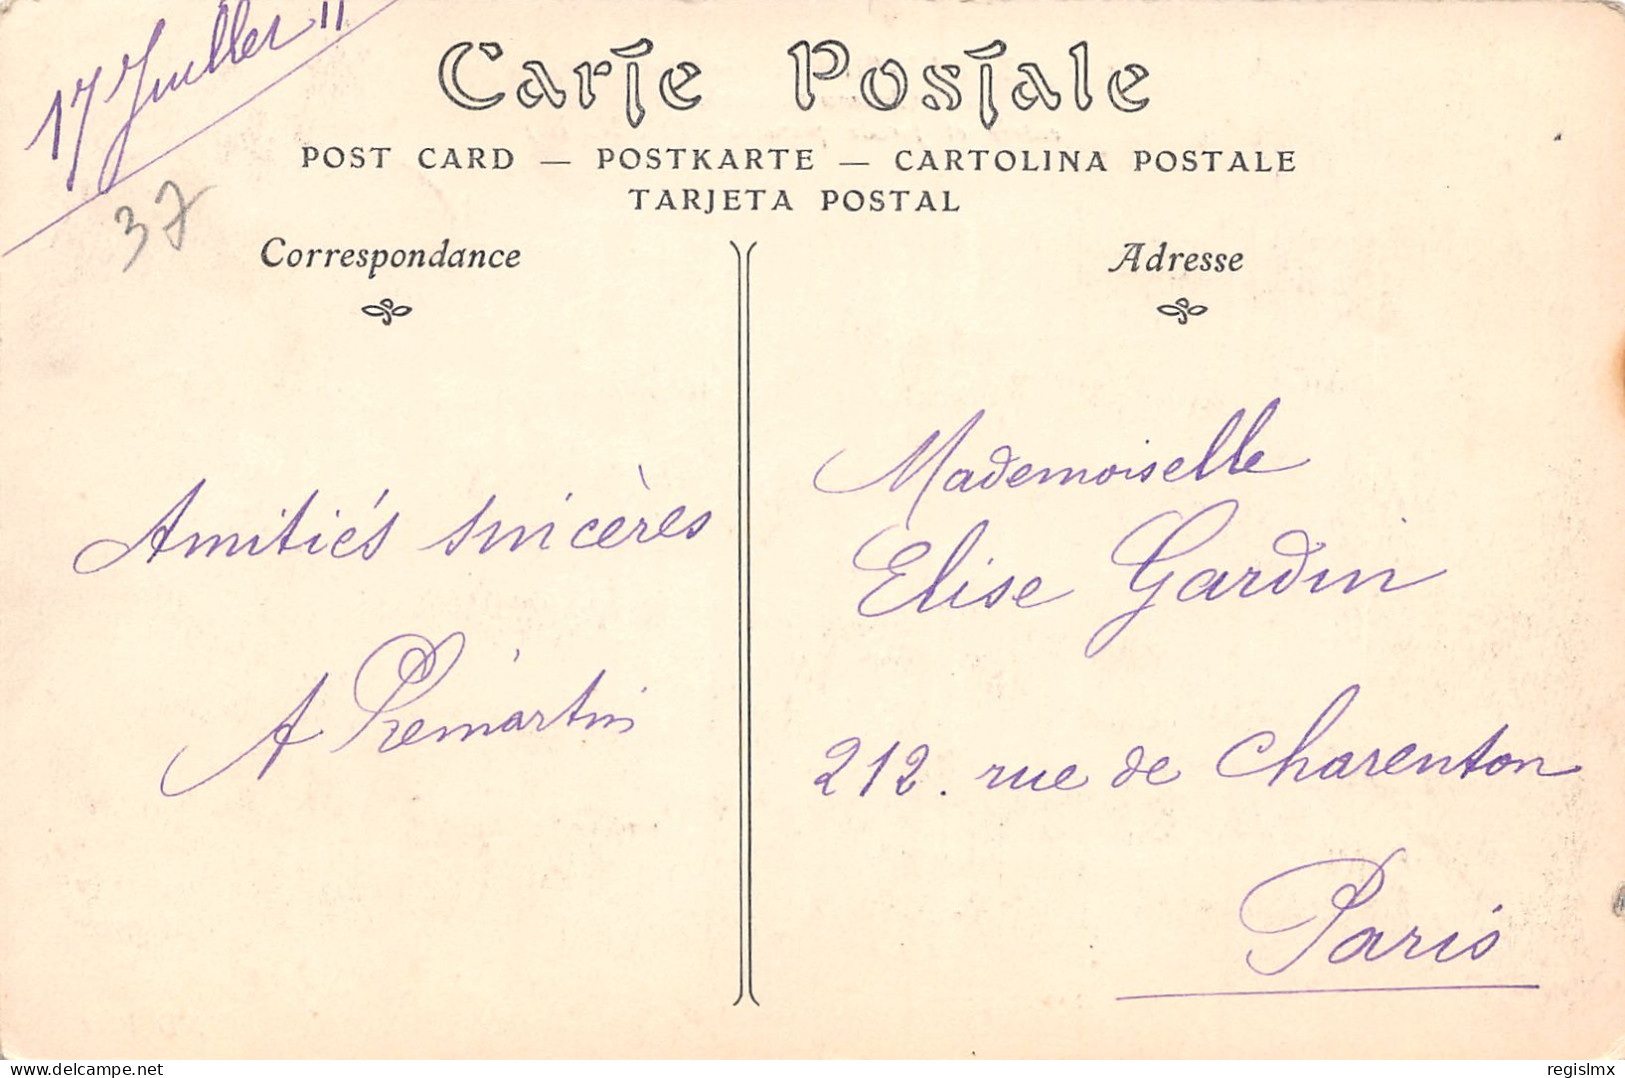 17 Juillet 11
37
Carte Postale
POST CARD — POSTKARTE — CARTOLINA POSTALE
TARJETA POSTAL
Correspondance
Adresse
Amitiés sincères
A Prémartin
Mademoiselle
Elise Gardin
212. rue de Charenton
Paris
delcampe.net
regislmx